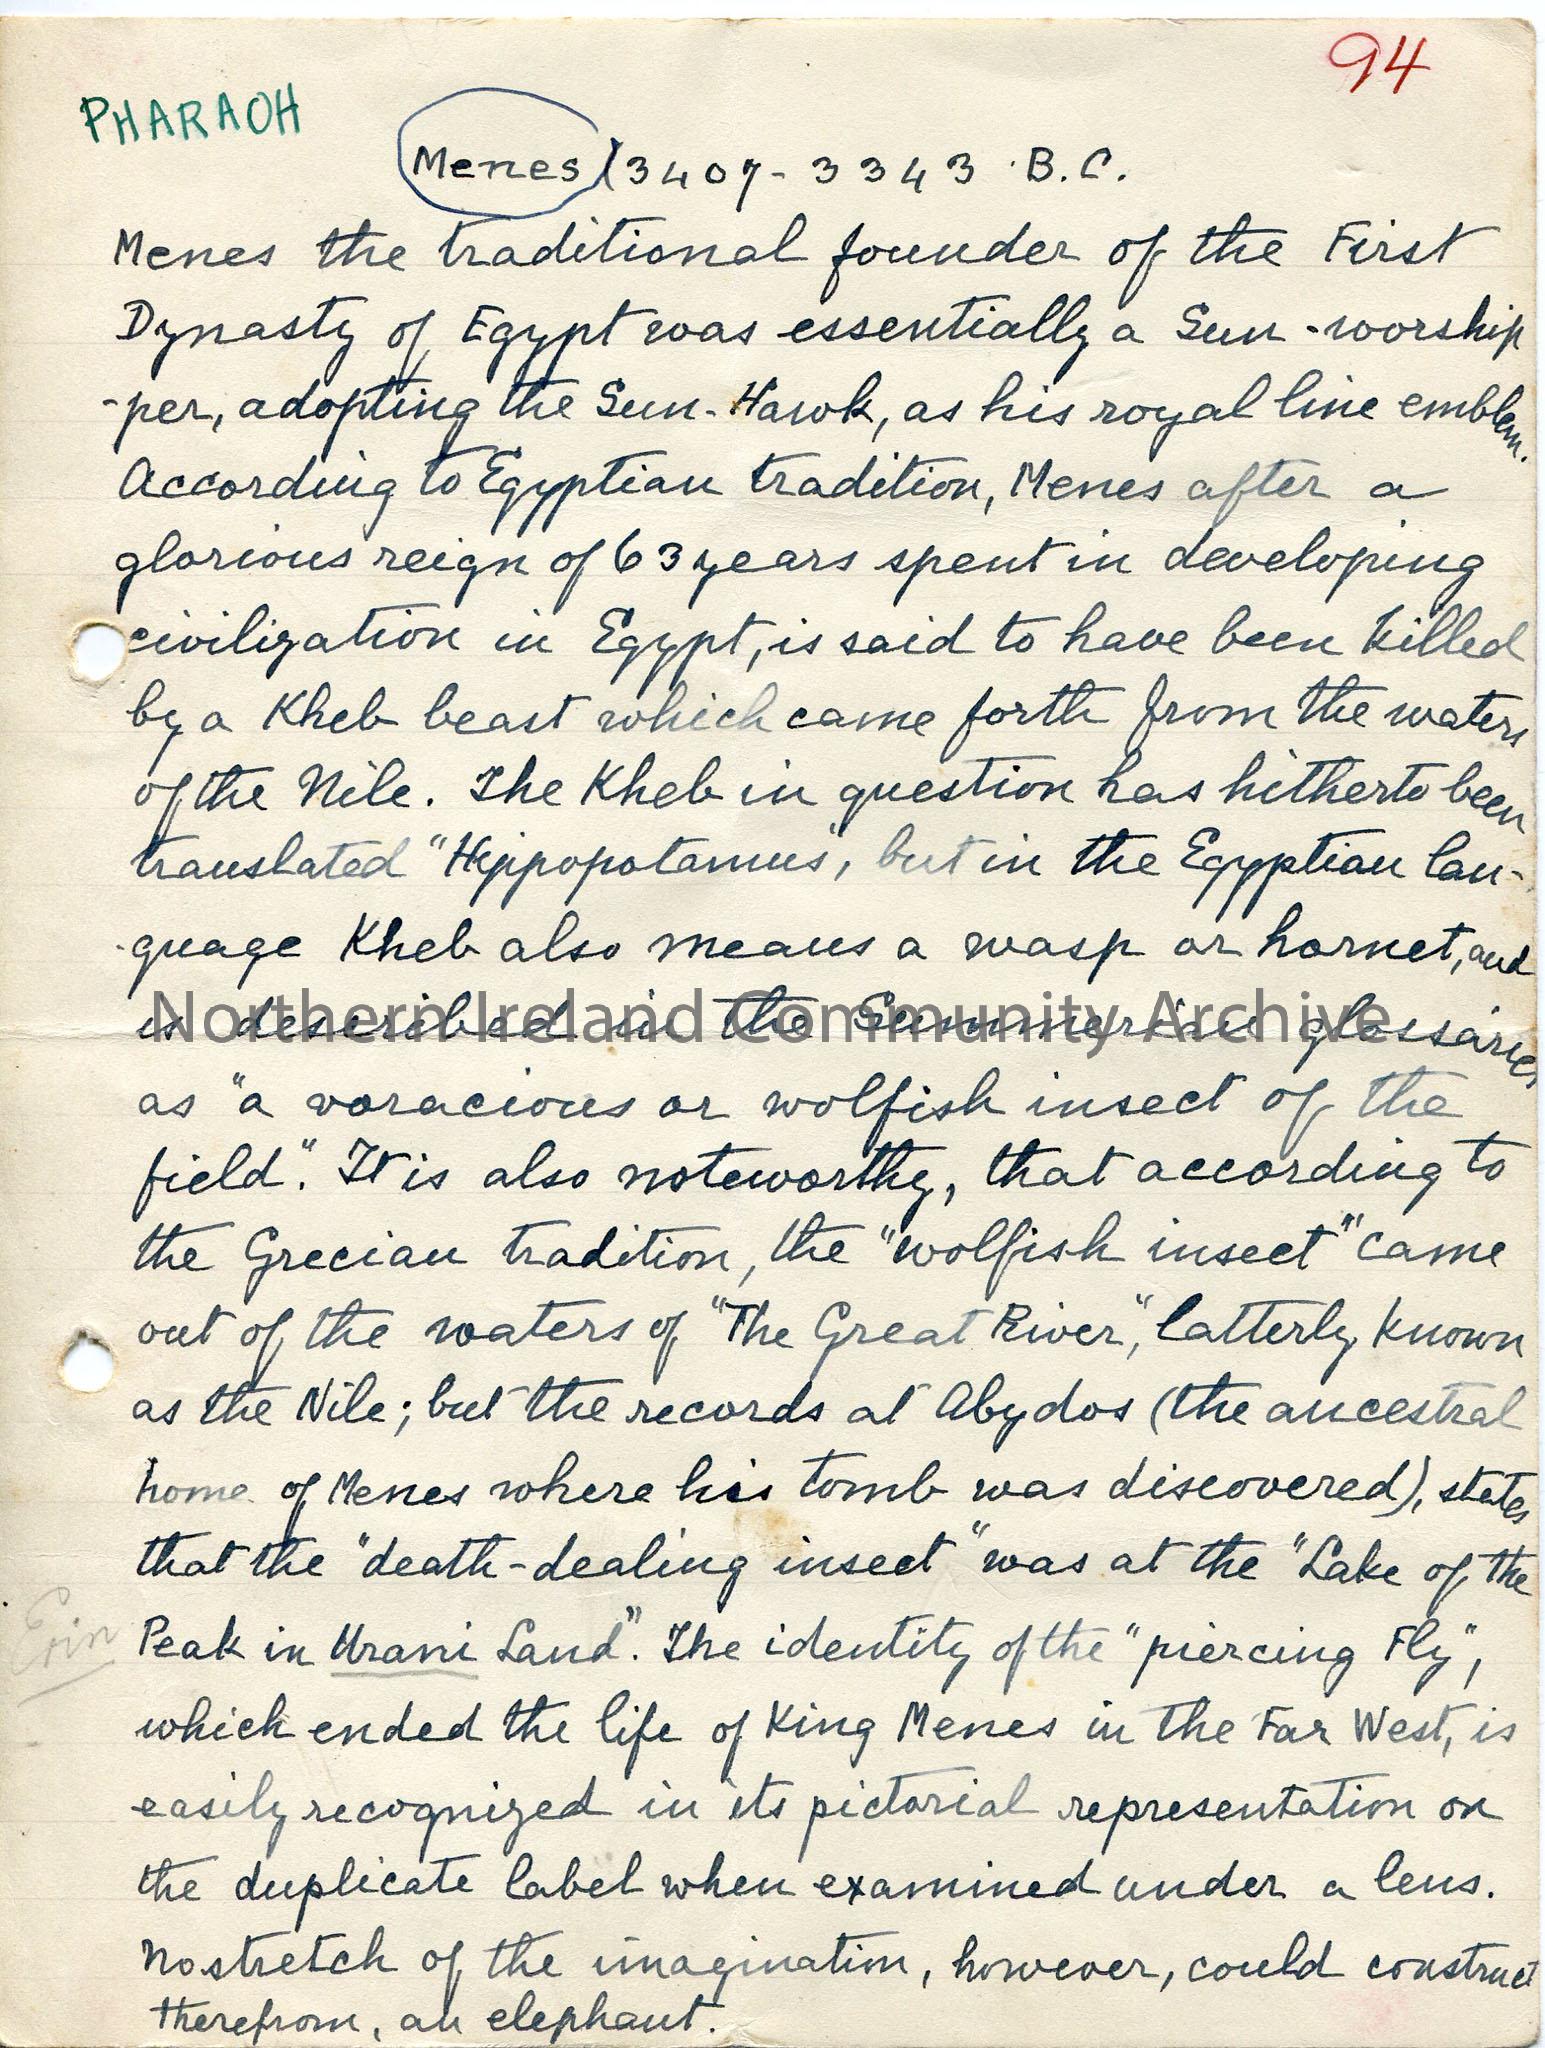 94
PHARAOH
Menes (3407-3343 B.C.
Menes the traditional founder of the First
Dynasty of Egypt was essentially a Sun-worship
-per, adopting the Sun-Hawk, as his royal line emblem.
According to Egyptian tradition, Menes after a
glorious reign of 63 years spent in developing
civilization in Egypt, is said to have been killed
by a Kheb beast which came forth from the waters
of the Nile. The Kheb in question has hitherto been
translated "Hippopotamus", but in the Egyptian lan-
-guage Kheb also means a wasp or hornet, and
is described in the Summerian glossaries
Northern Ireland Community Archive
as "a voracious or wolfish insect of the
field". It is also noteworthy, that according to
the Grecian tradition, the "wolfish insect" came
out of the waters of "The Great River", latterly known
as the Nile; but the records at Abydos (the ancestral
home of Menes where his tomb was discovered), states
that the "death-dealing insect" was at the "Lake of the
Erin
Peak in Urani Land". The identity of the "piercing Fly",
which ended the life of King Menes in the Far West, is
easily recognized in its pictorial representation on
the duplicate label when examined under a lens.
No stretch of the imagination, however, could construct
therefrom, an elephant.